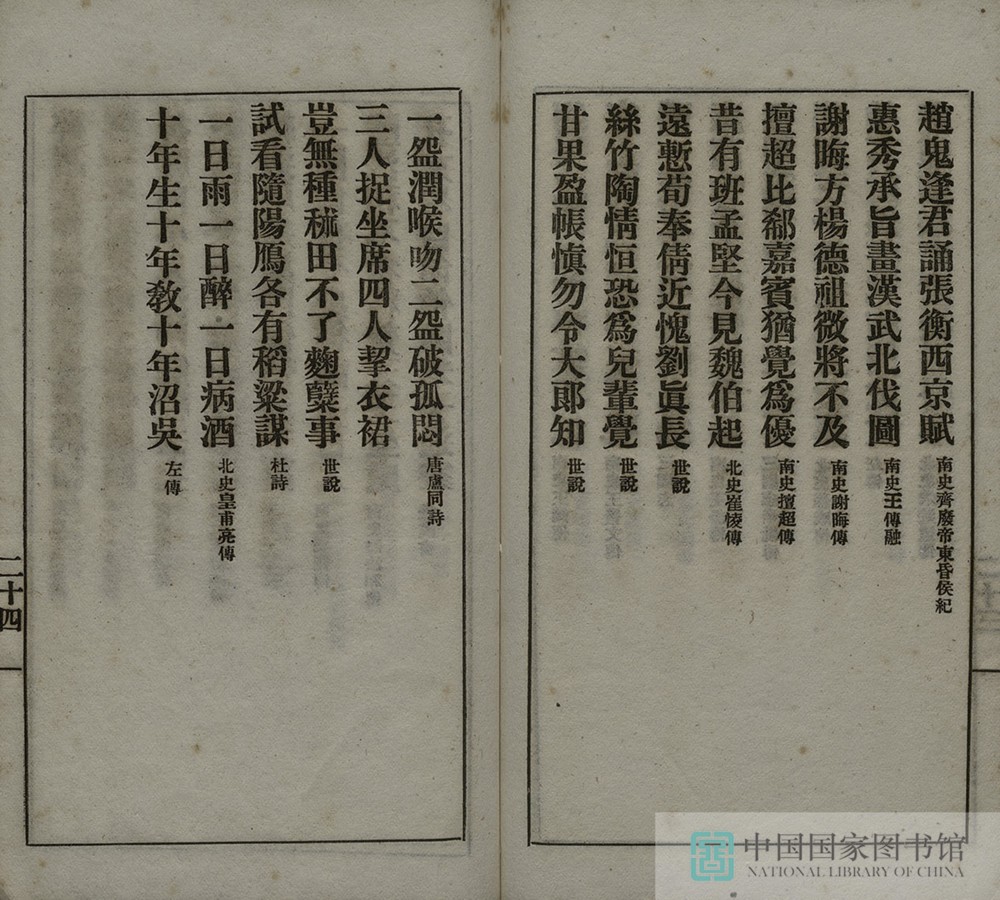 趙鬼逢君誦張衡西京賦 南史齊廢帝東昏侯紀
惠秀承旨畫漢武北伐圖 南史王傳融
謝晦方楊德祖微將不及 南史謝晦傳
擅超比郗嘉賓猶覺爲優 南史擅超傳
昔有班孟堅今見魏伯起 北史崔㥄傳
遠慙荀奉倩近愧劉眞長 世說
絲竹陶情恒恐爲兒輩覺 世說
甘果盈帳愼勿令大郞知 世說
一盌潤喉吻二盌破孤悶 唐盧同詩
三人捉坐席四人挈衣裙
豈無種秫田不了麴櫱事 世說
試看隨陽鴈各有稻粱謀 杜詩
一日雨一日醉一日病酒 北史皇甫亮傳
十年生十年敎十年沼吳 左傳
二十四
中国国家图书馆
NATIONAL LIBRARY OF CHINA